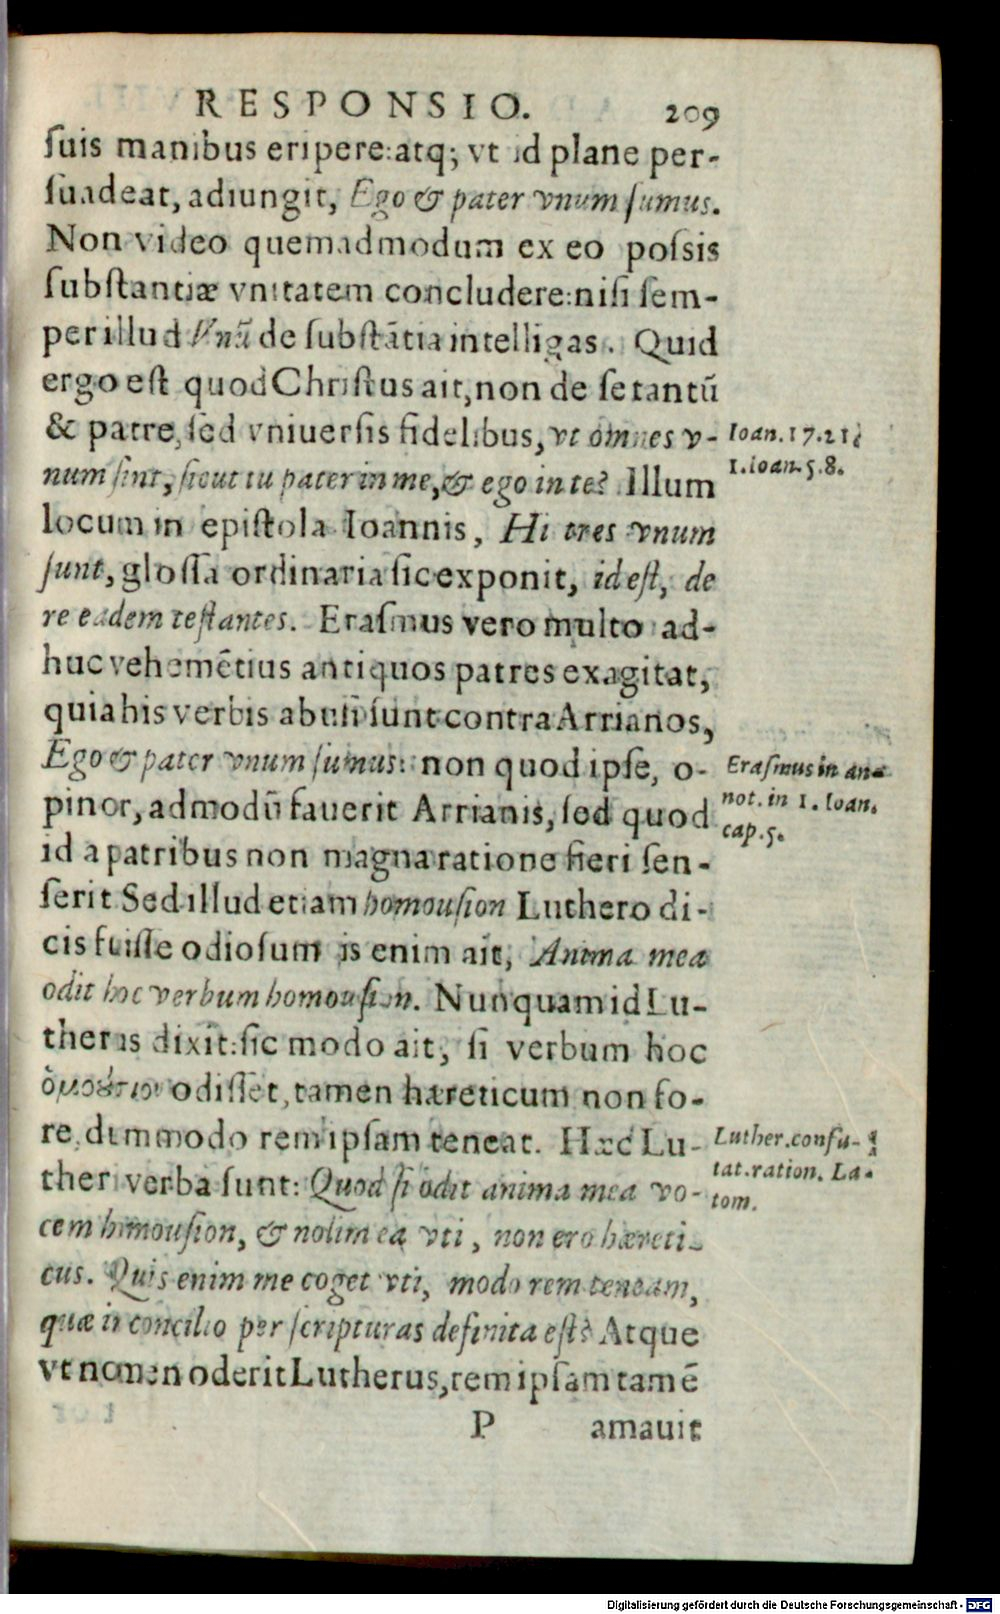 RESPONSIO. 209
ſuis manibus eripere: atq; vt id plane per-
ſuadeat, adiungit, Ego & pater vnum ſumus.
Non video quemadmodum ex eo poſsis
ſubſtantiæ vnitatem concludere: niſi ſem-
per illud Vnũ de ſubſtãtia intelligas. Quid
ergo eſt quod Chriſtus ait, non de ſe tantũ
& patre, ſed vniuerſis fidelibus, vt omnes v-
Ioan. 17. 21;
num ſint, ſicut tu pater in me, & ego in te? Illum
1. Ioan. 5. 8.
locum in epiſtola Ioannis, Hi tres vnum
ſunt, gloſſa ordinaria ſic exponit, id eſt, de
re eadem teſtantes. Eraſmus vero multo ad-
huc vehemẽtius antiquos patres exagitat,
quia his verbis abuſi ſunt contra Arrianos,
Ego & pater vnum ſumus: non quod ipſe, o-
Eraſmus in an-
pinor, admodũ fauerit Arrianis, ſed quod
not. in 1. Ioan.
cap. 5.
id a patribus non magna ratione fieri ſen-
ſerit Sed illud etiam homouſion Luthero di-
cis fuiſſe odioſum is enim ait, Anima mea
odit hoc verbum homouſion. Nunquam id Lu-
therus dixit: ſic modo ait, ſi verbum hoc
ὁμοούσιον odiſſet, tamen hæreticum non fo-
re, dummodo rem ipſam teneat. Hæc Lu-
Luther. confu-
ther verba ſunt: Quod ſi odit anima mea vo-
tat. ration. La-
tom.
cem homouſion, & nolim ea vti, non ero hæreti-
cus. Quis enim me coget vti, modo rem teneam,
quæ in concilio per ſcripturas definita eſt? Atque
vt nomen oderit Lutherus, rem ipſam tamẽ
P amauit
Digitalisierung gefördert durch die Deutsche Forschungsgemeinschaft - DFG